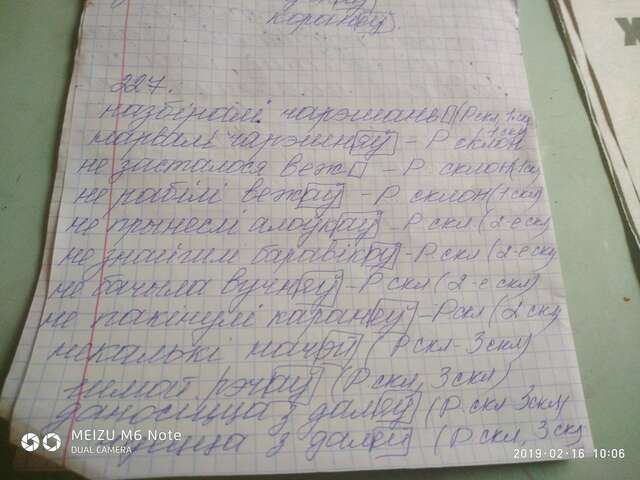 каранёў)
227.
назбіралі чарэшань (Р скл 1 ск
нарвалі чарэшняў - Р склон 1 скл
не засталося веж - Р. склон(1 ск
не рабілі вежаў - Р склон(1 скл)
не прынеслі алоўкаў - Р скл (2-е скл
не знайшлі баравікоў - Р скл (2-е скл
не бачыла вучняў - Р скл (2-е скл)
не пакінулі каранёў - Р скл (2 скл
некалькі начэй (Р скл - 3 скл)
нямат рэчаў (Р скл, 3 скл)
даносіцца з далеў (Р. скл 3 скл)
з далей (Р скл, 3 скл
MEIZU M6 Note
DUAL CAMERA
2019-02-16 10:06
Ж